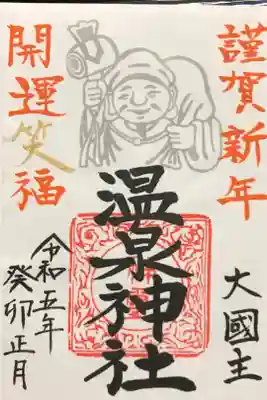 謹賀新年
開運笑福
大國主
温泉神社
令和五年
癸卯正月